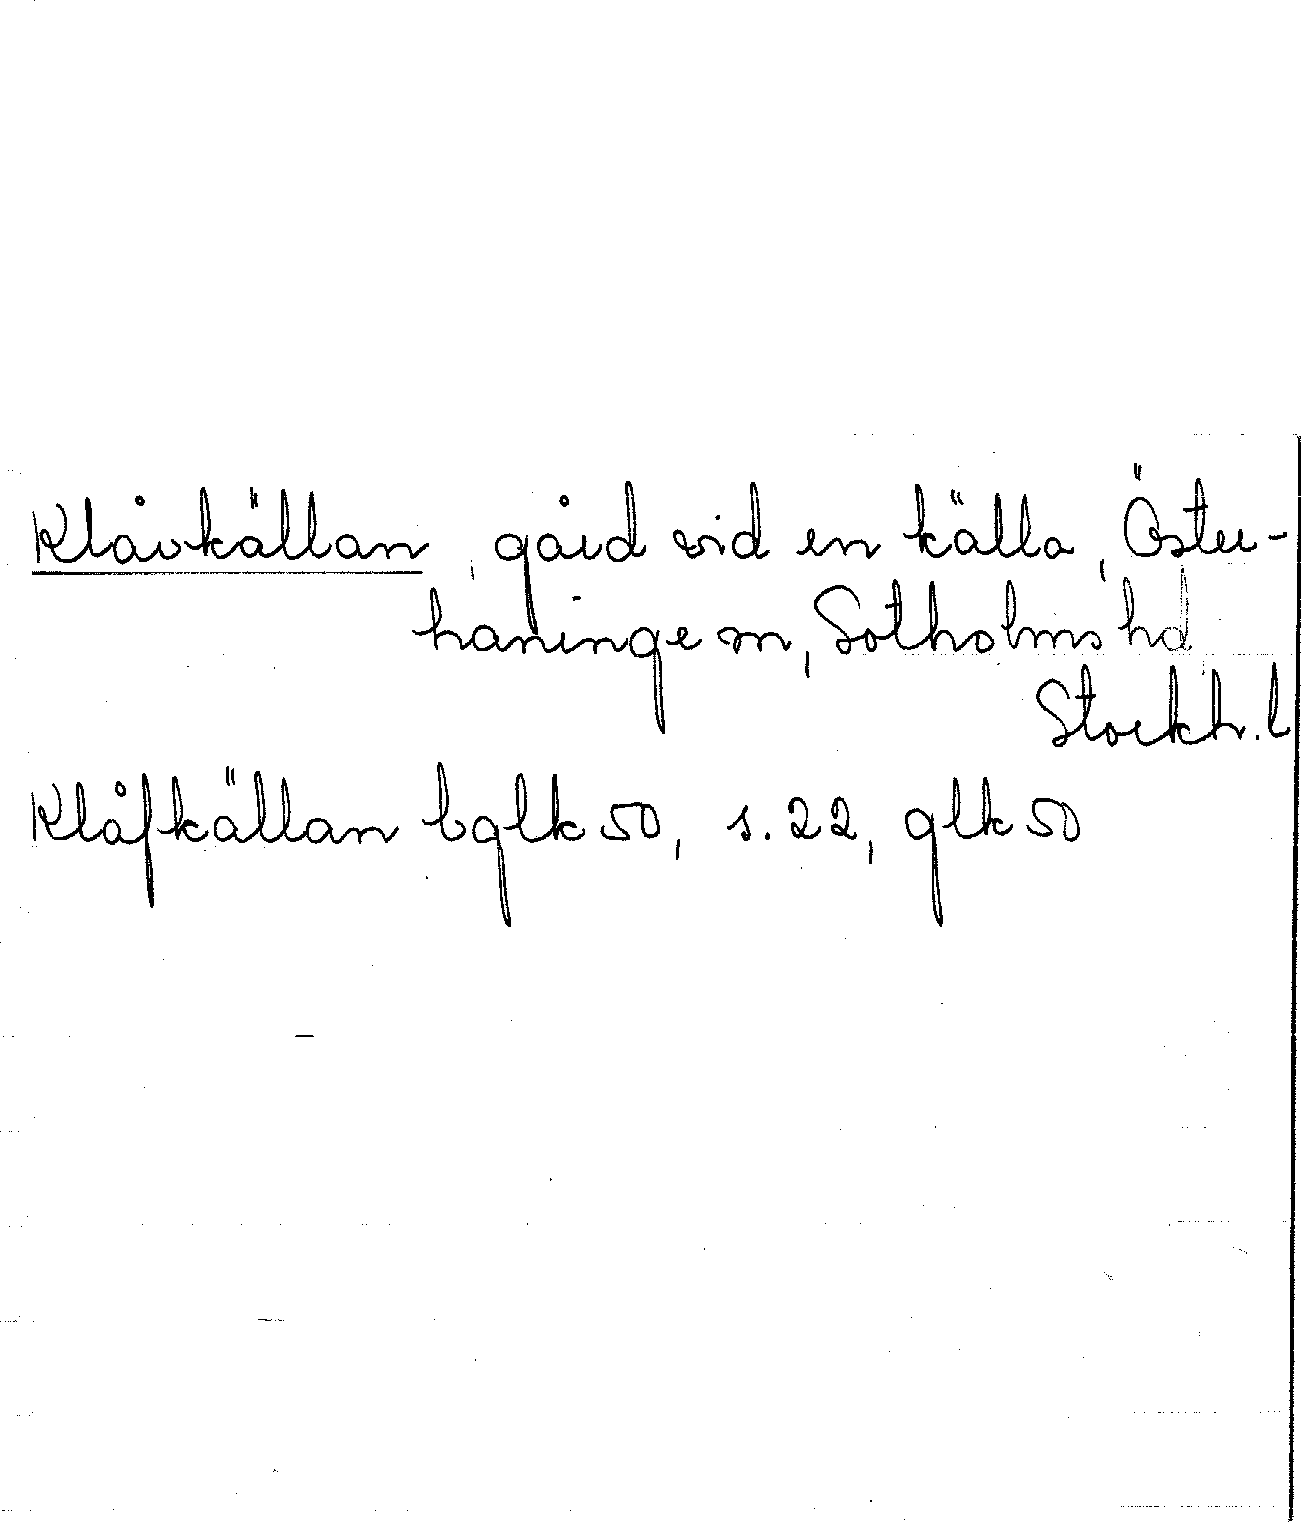 Klåvkällan, gård vid en källa, Öster-
haninge sn, Sotholms hd,
Stockh. l
Klåfkällan bglk 50, s. 22, glk 50